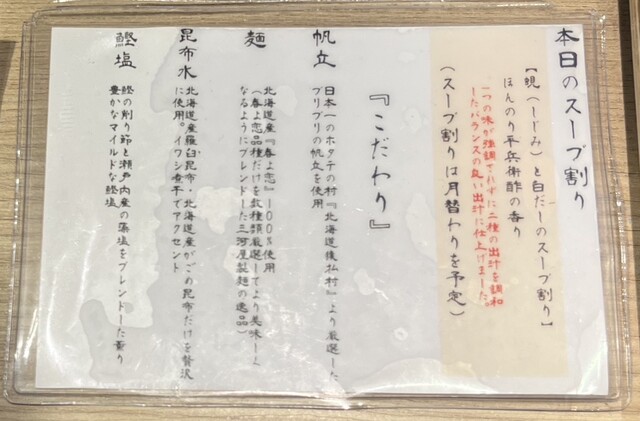 本日のスープ割り
【蜆(しじみ)と白だしのスープ割り】
ほんのり平兵衛酢の香り
一つの味が強調されずに二種の出汁を調和
したバランスの良い出汁に仕上げました。
(スープ割りは月替わりを予定)
『こだわり』
帆立
日本一のホタテの村『北海道猿払村』より厳選した
プリプリの帆立を使用
麺
北海道産『春よ恋』100%使用
(春よ恋品種だけを数種類厳選してより美味しく
なるようにブレンドした三河屋製麺の逸品)
昆布水
北海道産羅臼昆布・北海道産がごめ昆布だけを贅沢
に使用。イワシ煮干でアクセント
鰹塩
鰹の削り節と瀬戸内産の藻塩をブレンドした薫り
豊かなマイルドな鰹塩